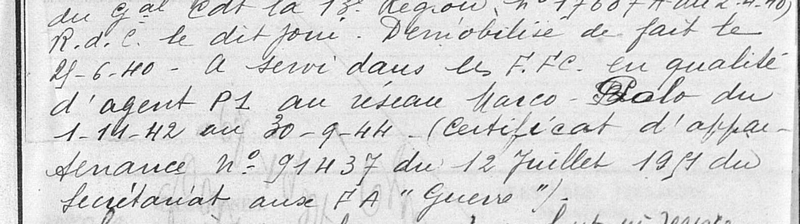 du Gal Cdt la 13e Région, n° 17607A du 2-4-40,
R.d.C. le dit jour. Démobilisé de fait le
25-6-40 - A servi dans les F.F.C. en qualité
d'agent P1 au réseau Marco-Polo du
1-11-42 au 30-9-44. (Certificat d'appar-
tenance n° 91437 du 12 Juillet 1951 du
Secrétariat aux F A "Guerre").